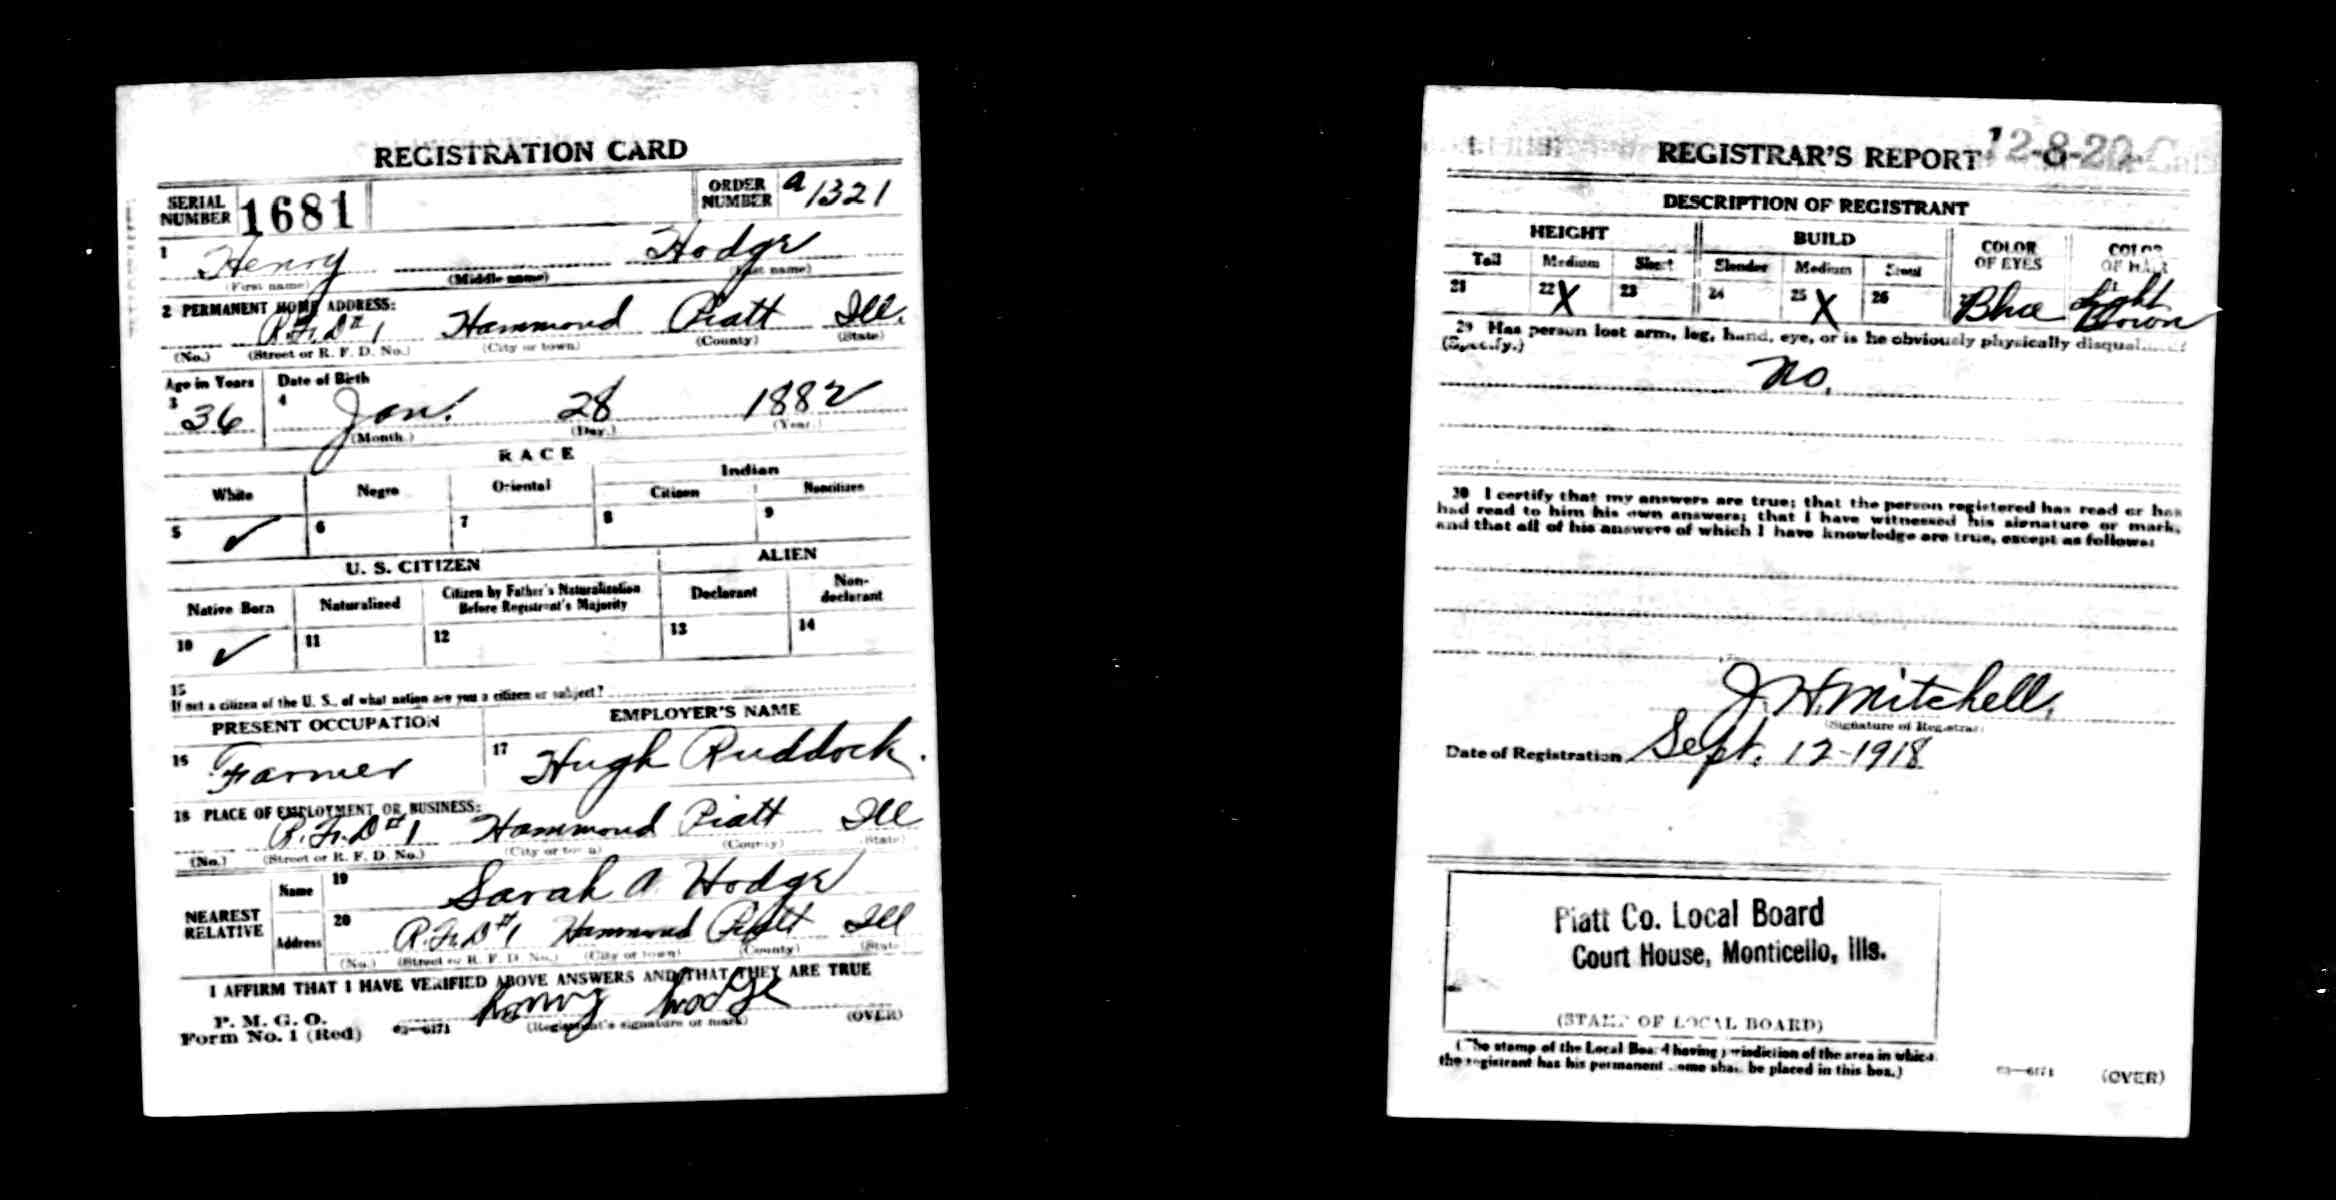 REGISTRATION CARD
SERIAL NUMBER 1681 ORDER NUMBER a1321
1 Henry Hodge
(First name) (Middle name) (Last name)
2 PERMANENT HOME ADDRESS:
R.F.D #1 Hammond Piatt Ill.
(No.) (Street or R. F. D. No.) (City or town) (County) (State)
Age in Years Date of Birth
3 36 4 Jan. 28 1882
(Month.) (Day.) (Year.)
RACE
White Negro Oriental Indian
Citizen Noncitizen
5 ✓ 6 7 8 9
U. S. CITIZEN ALIEN
Native Born Naturalized Citizen by Father's Naturalization Before Registrant's Majority Declarant Non-declarant
10 ✓ 11 12 13 14
15
If not a citizen of the U. S., of what nation are you a citizen or subject?
PRESENT OCCUPATION EMPLOYER'S NAME
16 Farmer 17 Hugh Ruddock.
18 PLACE OF EMPLOYMENT OR BUSINESS:
R.F.D #1 Hammond Piatt Ill
(No.) (Street or R. F. D. No.) (City or town) (County) (State)
NEAREST RELATIVE
Name 19 Sarah A Hodge
Address 20 R.F.D #1 Hammond Piatt Ill
(No.) (Street or R. F. D. No.) (City or town) (County) (State)
I AFFIRM THAT I HAVE VERIFIED ABOVE ANSWERS AND THAT THEY ARE TRUE
P. M. G. O.
Form No. 1 (Red) 03—6171 Henry Hodge
(Registrant's signature or mark) (OVER)
REGISTRAR'S REPORT 12-8-20-C
DESCRIPTION OF REGISTRANT
HEIGHT BUILD COLOR OF EYES COLOR OF HAIR
Tall Medium Short Slender Medium Stout
21 22 X 23 24 25 X 26 Blue Light Brown
29 Has person lost arm, leg, hand, eye, or is he obviously physically disqualified?
(Specify.)
No.
30 I certify that my answers are true; that the person registered has read or has
had read to him his own answers; that I have witnessed his signature or mark,
and that all of his answers of which I have knowledge are true, except as follows:
J. H. Mitchell.
(Signature of Registrar)
Date of Registration Sept. 12-1918
Piatt Co. Local Board
Court House, Monticello, Ills.
(STAMP OF LOCAL BOARD)
(The stamp of the Local Board having jurisdiction of the area in which
the registrant has his permanent home shall be placed in this box.)
03—6171 (OVER)